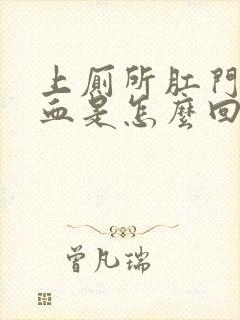 上厠所肛門
血是怎麼回
曾凡瑞